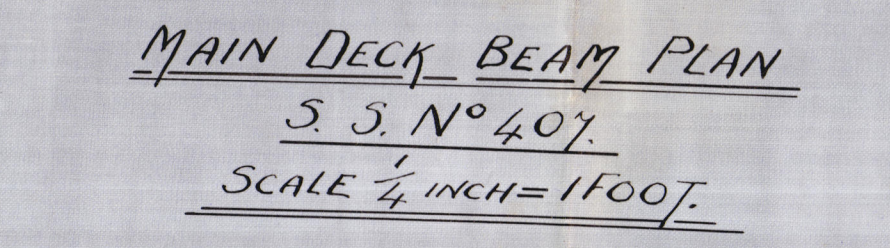 MAIN DECK BEAM PLAN
S. S. Nº 407.
SCALE 1/4 INCH = 1 FOOT.